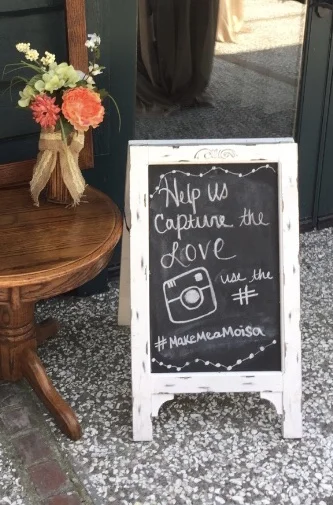 Help us
Capture the
Love
use the
#
#MakeMeaMoisa